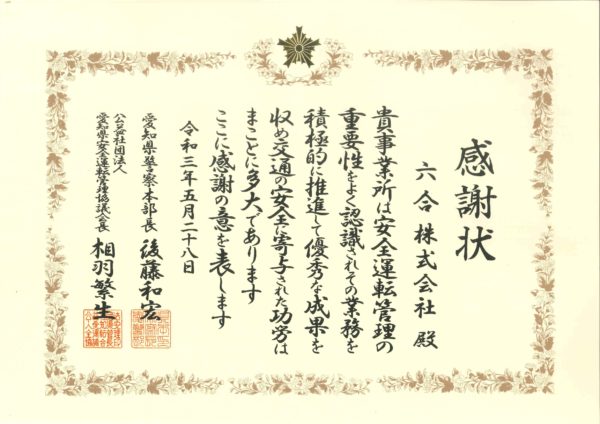 感謝状
六合株式会社 殿
貴事業所は安全運転管理の
重要性をよく認識されその業務を
積極的に推進して優秀な成果を
収め交通の安全に寄与された功労は
まことに多大であります
ここに感謝の意を表します
令和三年五月二十八日
愛知県警察本部長 後藤和宏
公益社団法人
愛知県安全運転管理協議会長 相羽繁生